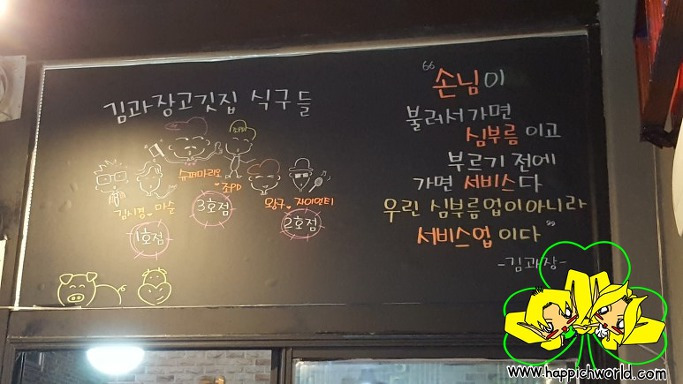 김과장고깃집 식구들
슈퍼마리오
조PD
마술
왕구
자이언티
1호점
3호점
2호점
“손님이
불러서가면
심부름이고
부르기 전에
가면 서비스다
우린 심부름업이아니라
서비스업이다”
-김과장-
www.happichworld.com